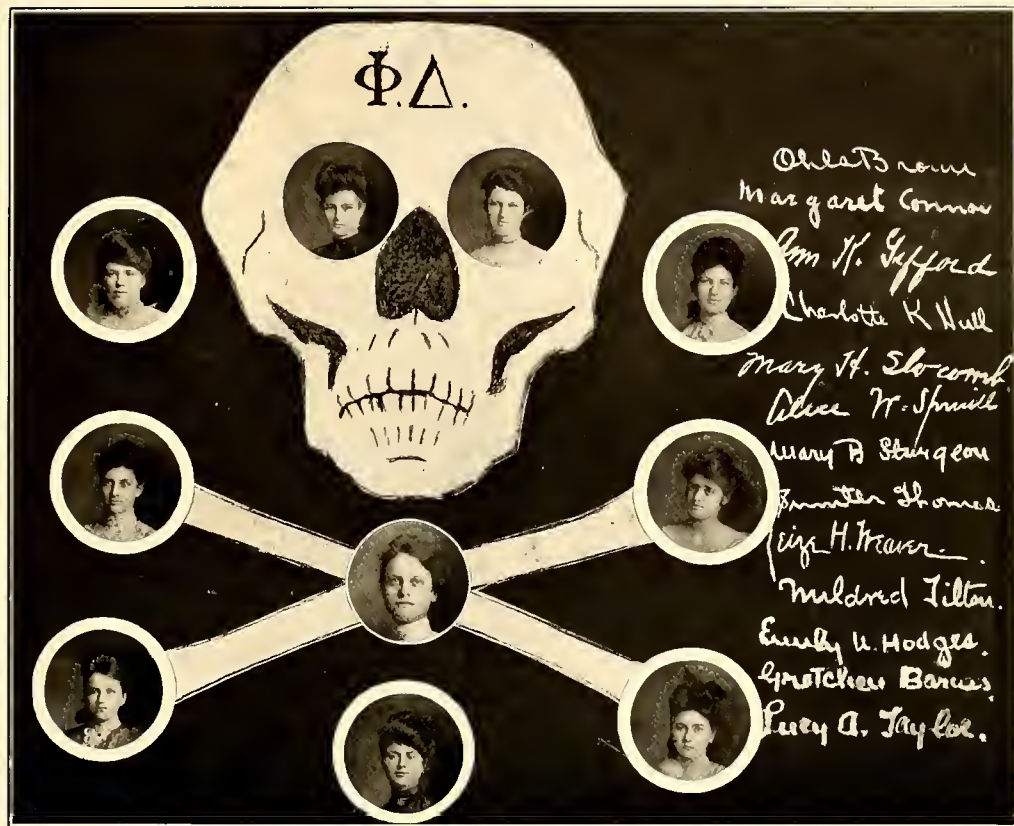 Φ.Δ.
Ohla Brown
Margaret Connor
Ann K. Gifford
Charlotte K Hull
Mary H. Slocomb
Alice W. Spruill
Mary B Sturgeon
Thomas
H. Weaver.
Mildred Tilton.
Emily U. Hodges.
Gretchen Barnes.
Lucy A. Taylor.